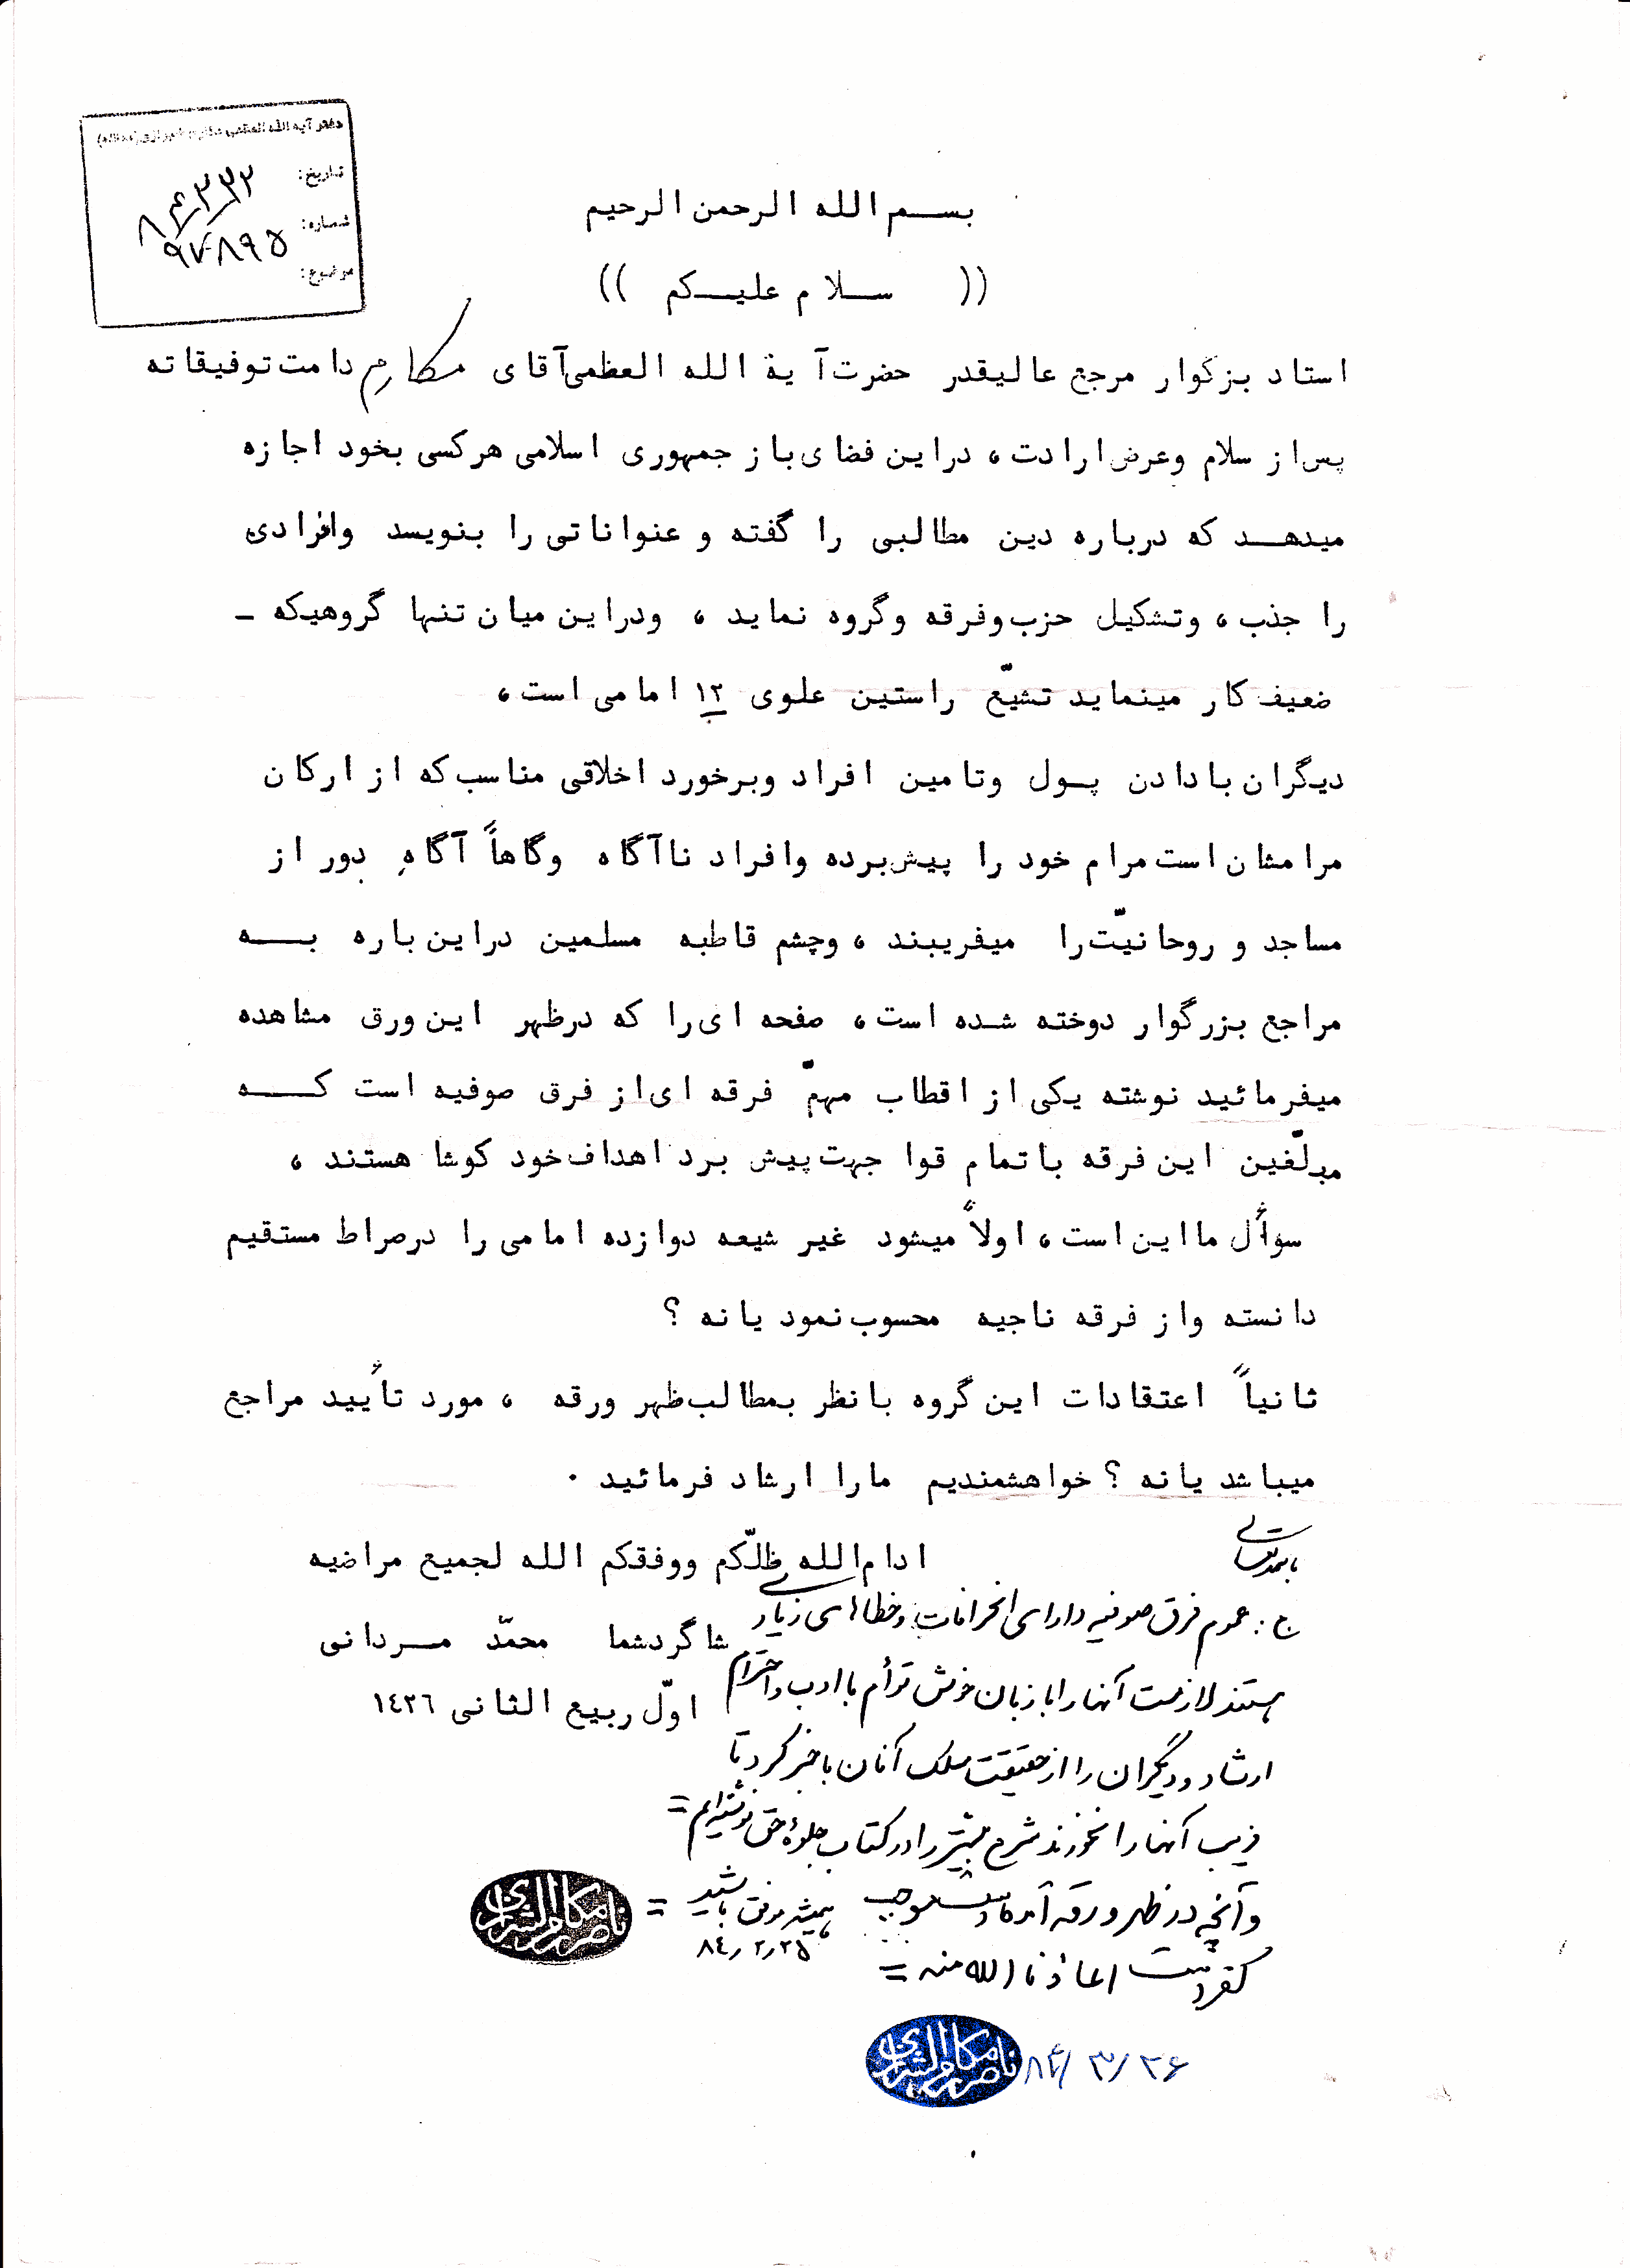 دفتر آیه الله العظمی مکارم شیرازی (مدظله)
تاریخ:
شماره: ۹۷۸۹۵
موضوع:
بسم الله الرحمن الرحیم
(( سلام علیکم ))
استاد بزگوار مرجع عالیقدر حضرت آیة الله العظمی آقای مکارم دامت توفیقاته
پس از سلام وعرض ارادت، در این فضای باز جمهوری اسلامی هرکسی بخود اجازه
میدهد که درباره دین مطالبی را گفته و عنواناتی را بنویسد وافرادی
را جذب، وتشکیل حزب وفرقه وگروه نماید، ودراین میان تنها گروهیکه -
ضعیف کار مینماید تشیّع راستین علوی ۱۲ امامی است،
دیگران با دادن پول وتامین افراد وبرخورد اخلاقی مناسب که از ارکان
مرامشان است مرام خود را پیش برده وافراد ناآگاه وگاهاً آگاه دور از
مساجد و روحانیّت را میفریبند، وچشم قاطبه مسلمین دراین باره به
مراجع بزرگوار دوخته شده است، صفحه ای را که درظهر این ورق مشاهده
میفرمائید نوشته یکی از اقطاب مهمّ فرقه ای از فرق صوفیه است که
مبلّغین این فرقه با تمام قوا جهت پیش برد اهداف خود کوشا هستند،
سوأل ما این است، اولاً میشود غیر شیعه دوازده امامی را درصراط مستقیم
دانسته واز فرقه ناجیه محسوب نمود یا نه ؟
ثانیاً اعتقادات این گروه با نظر بمطالب ظهر ورقه ، مورد تأیید مراجع
میباشد یا نه ؟ خواهشمندیم ما را ارشاد فرمائید .
ادام الله ظلّکم ووفقکم الله لجمیع مراضیه
شاگرد شما محمّد مردانی
اوّل ربیع الثانی ١٤٢٦
باسمه تعالی
ج: عموم فرق صوفیه دارای انحرافات وخطاهای زیادی
هستند لازمست آنها را با زبان خوش توأم با ادب و احترام
ارشاد ودیگران را از حقیقت مسلک آنان باخبر کرد تا
فریب آنها را نخورند شرح بیشتر را در کتاب جلوهٔ حق نوشته‌ایم =
همیشه موفق باشید =
۸٤٫۲٫۲۵
وآنچه در ظهر ورقه آمده موجب
کفر است اعاذنا الله منه =
۸۴/۳/۲۶
ناصر مکارم الشیرازی
ناصر مکارم الشیرازی